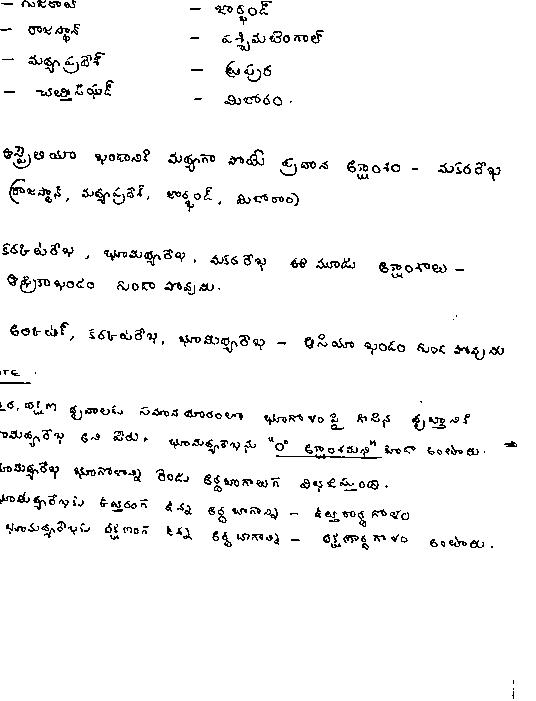 – గుజరాత్ – జార్ఖండ్
– రాజస్థాన్ – పశ్చిమబెంగాల్
– మధ్యప్రదేశ్ – త్రిపుర
– చత్తీస్‌ఘడ్ – మిజోరం.
ఆస్ట్రేలియా ఖండానికి మధ్యగా పోయే ప్రధాన అక్షాంశం – మకరరేఖ
(రాజస్థాన్, మధ్యప్రదేశ్, జార్ఖండ్, మిజోరాం)
కర్కటరేఖ, భూమధ్యరేఖ, మకరరేఖ ఈ మూడు అక్షాంశాలు –
ఆఫ్రికాఖండం గుండా పోవును.
ఆర్కటిక్, కర్కటరేఖ, భూమధ్యరేఖ – ఆసియా ఖండం గుండ పోవును
దక్షిణ ధృవాలకు సమాన దూరంలో భూగోళంపై గీసిన వృత్తానికి
భూమధ్యరేఖ అని పేరు. భూమధ్యరేఖను "0° అక్షాంశమని" కూడా అంటారు.
భూమధ్యరేఖ భూగోళాన్ని రెండు అర్ధభాగాలుగ విభజిస్తుంది.
భూమధ్యరేఖకు ఉత్తరంగ ఉన్న అర్ధభాగాన్ని – ఉత్తరార్ధగోళం
భూమధ్యరేఖకు దక్షిణంగ ఉన్న అర్ధభాగాన్ని – దక్షిణార్ధగోళం అంటారు.